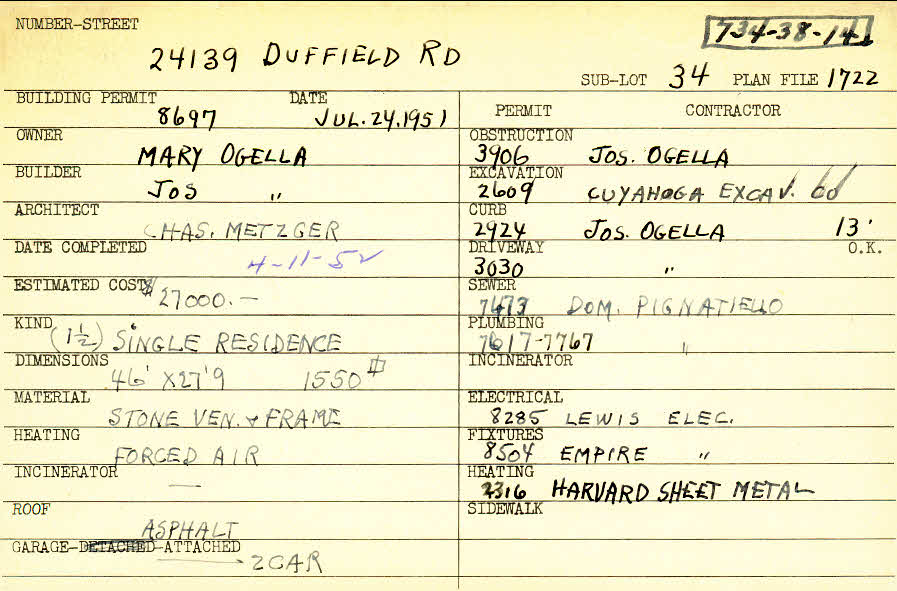 NUMBER-STREET
734-38-14
24139 DUFFIELD RD
SUB-LOT 34 PLAN FILE 1722
BUILDING PERMIT DATE
8697 JUL. 24, 1951
OWNER
MARY OGELLA
BUILDER
JOS "
ARCHITECT
CHAS. METZGER
DATE COMPLETED
4-11-52
ESTIMATED COST
$27000.—
KIND
(1½) SINGLE RESIDENCE
DIMENSIONS
46' X27'9 1550
MATERIAL
STONE VEN. & FRAME
HEATING
FORCED AIR
INCINERATOR
—
ROOF
ASPHALT
GARAGE-DETACHED-ATTACHED
2 CAR
PERMIT CONTRACTOR
OBSTRUCTION
3906 JOS. OGELLA
EXCAVATION
2609 CUYAHOGA EXCAV. CO
CURB
2924 JOS. OGELLA 13'
DRIVEWAY O.K.
3030 "
SEWER
7473 DOM. PIGNATIELLO
PLUMBING
7617-7767 "
INCINERATOR
ELECTRICAL
8285 LEWIS ELEC.
FIXTURES
8504 EMPIRE "
HEATING
2316 HARVARD SHEET METAL
SIDEWALK